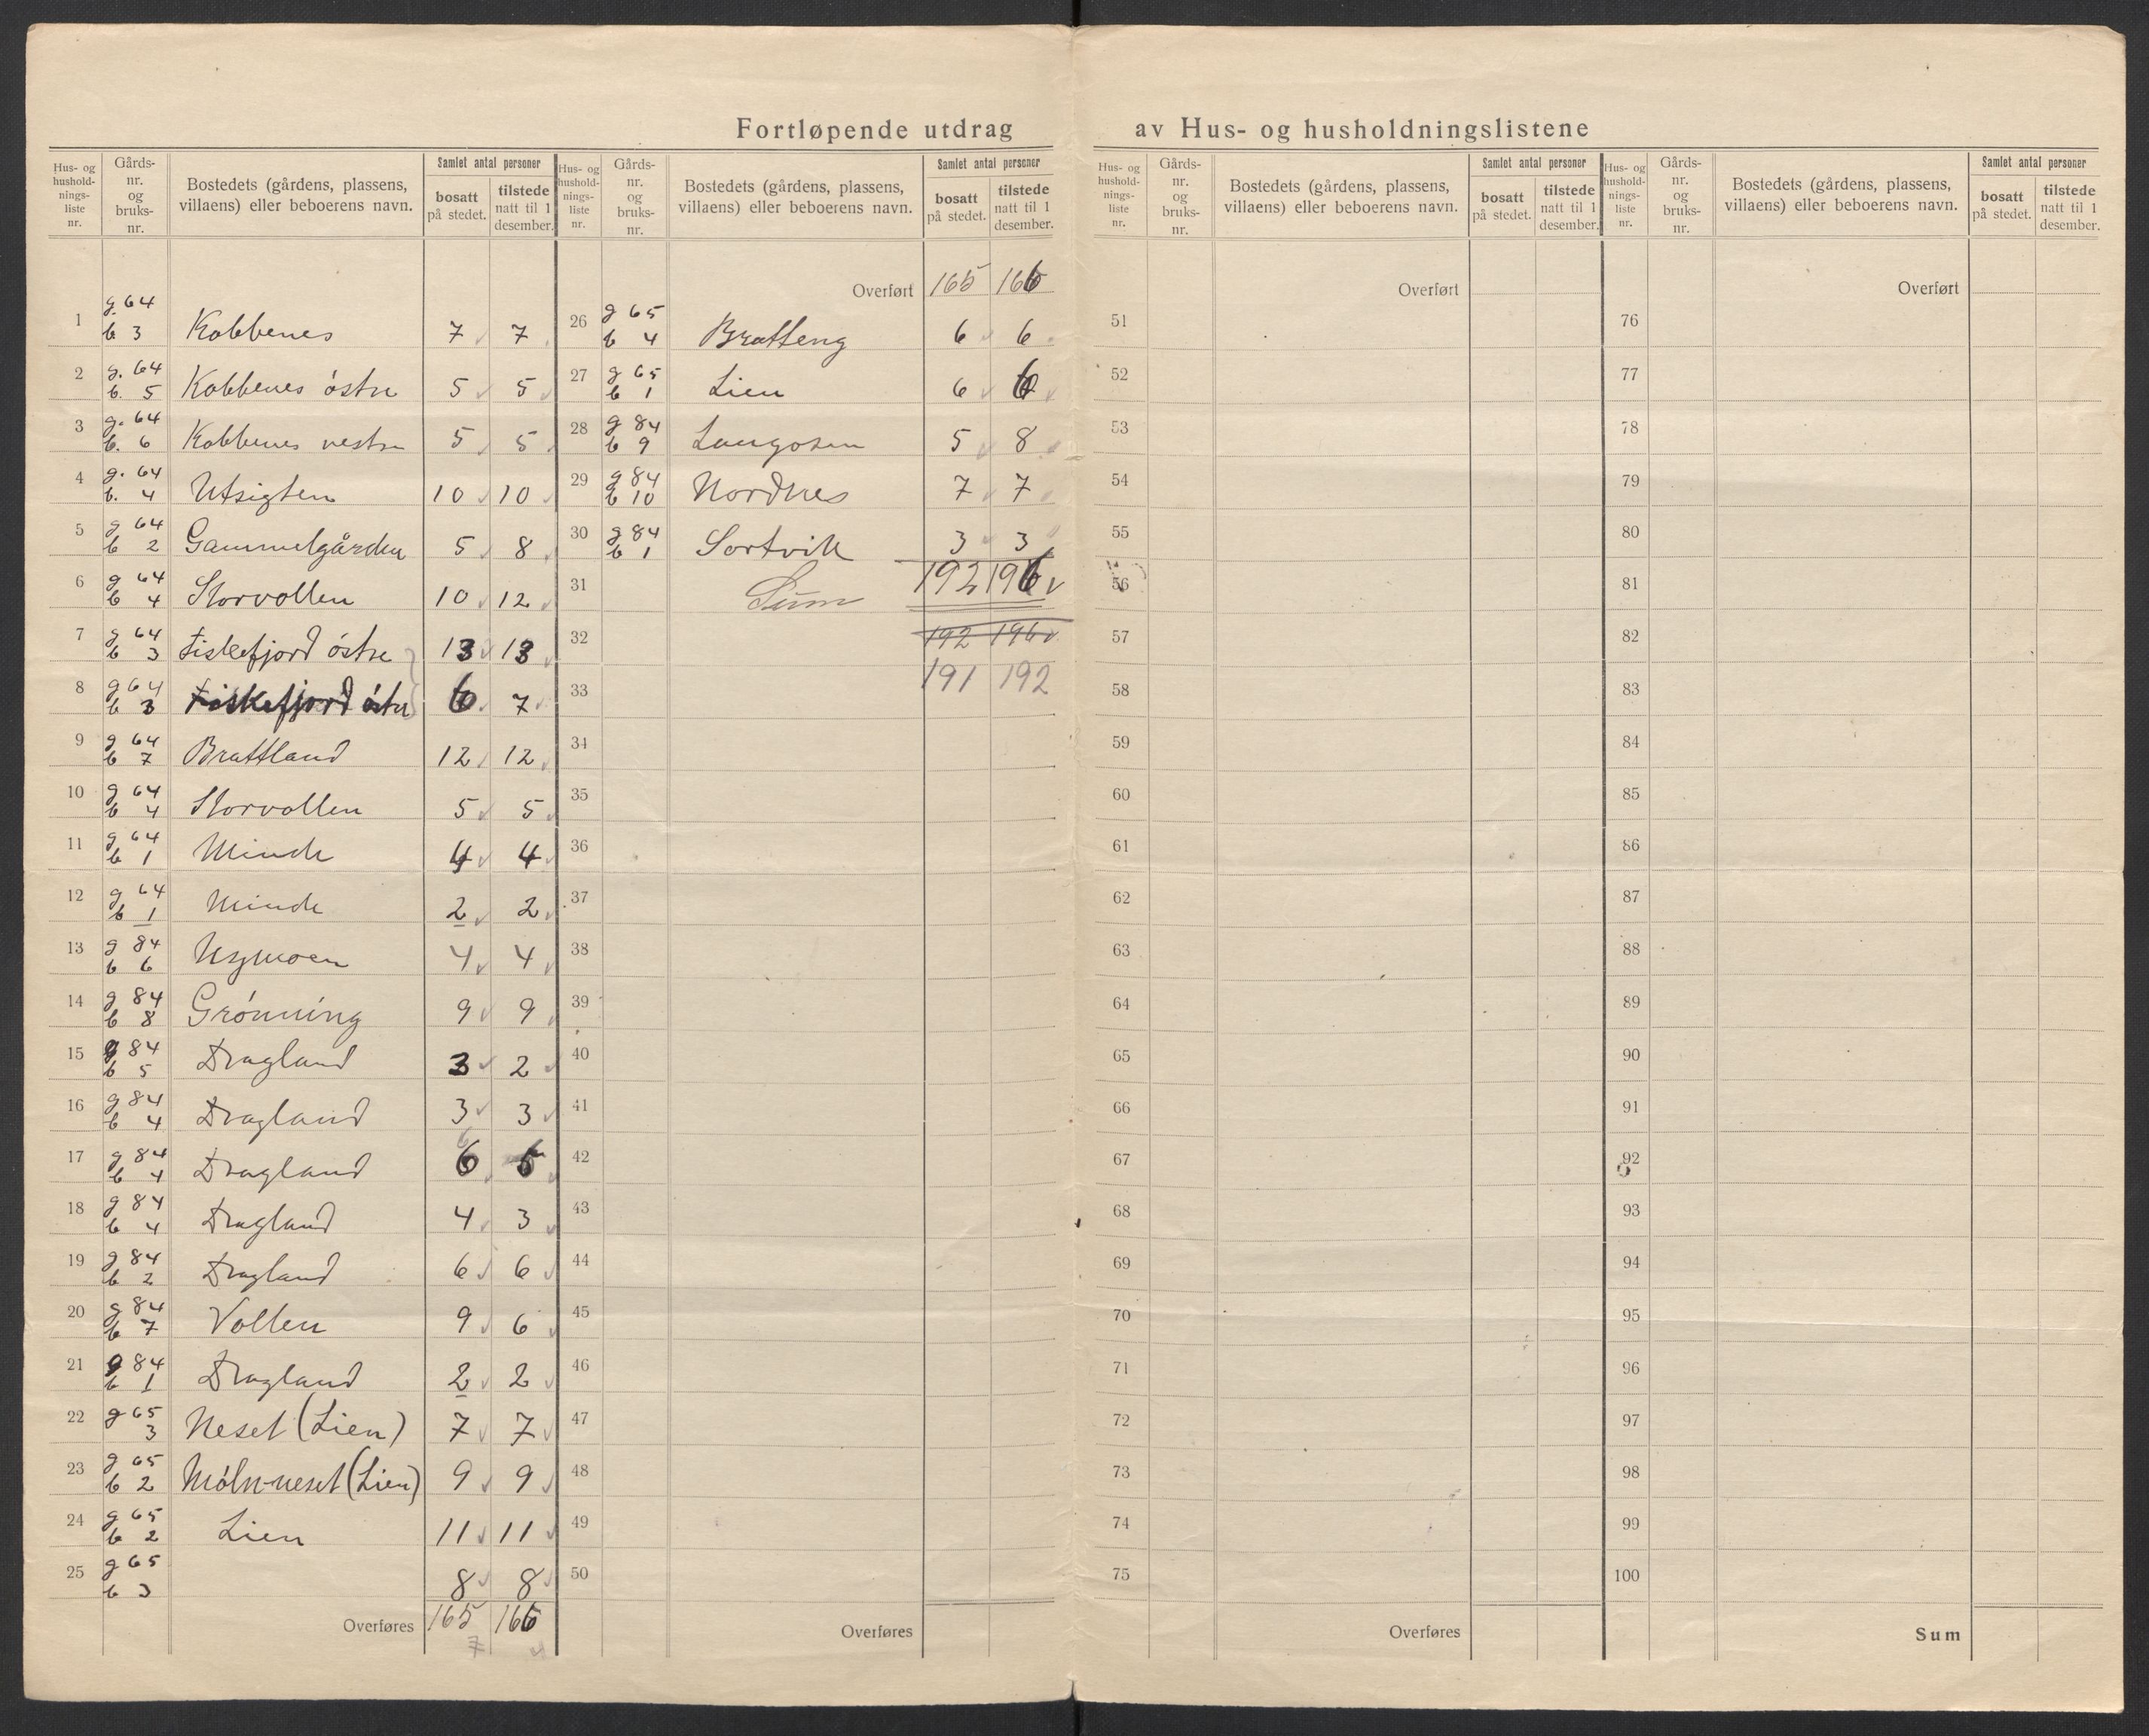 Fortløpende utdrag av Hus- og husholdningslistene
Hus- og hushold-nings-liste nr. | Gårds-nr. og bruks-nr. | Bostedets (gårdens, plassens, villaens) eller beboerens navn. | Samlet antal personer bosatt på stedet. | tilstede natt til 1 desember.
1 g. 64 b 3 Kobbenes 7 7
2 g. 64 b. 5 Kobbenes östre 5 5
3 g. 64 b. 6 Kobbenes vestre 5 5
4 g. 64 b. 4 Utsigten 10 10
5 g 64 b 2 Gammelgården 5 8
6 g 64 b 4 Storvollen 10 12
7 g 64 b 3 Fiskefjord östre 13 13
8 g 64 b 3 Fiskefjord östre 6 7
9 g 64 b 7 Brattland 12 12
10 g 64 b 4 Storvollen 5 5
11 g 64 b 1 Minde 4 4
12 g 64 b 1 Minde 2 2
13 g 84 b 6 Nymoen 4 4
14 g 84 b 8 Grönning 9 9
15 g 84 b 5 Dragland 3 2
16 g 84 b 4 Dragland 3 3
17 g 84 b 4 Dragland 6 6 5
18 g 84 b 4 Dragland 4 3
19 g 84 b 2 Dragland 6 6
20 g 84 b 7 Vollen 9 6
21 g 84 b 1 Dragland 2 2
22 g 65 3 Neset (Lien) 7 7
23 g 65 b 2 Möln-neset (Lien) 9 9
24 g 65 b 2 Lien 11 11
25 g 65 b 3 8 8
Overføres 165 166
7
Hus- og hushold-nings-liste nr. | Gårds-nr. og bruks-nr. | Bostedets (gårdens, plassens, villaens) eller beboerens navn. | Samlet antal personer bosatt på stedet. | tilstede natt til 1 desember.
Overført 165 166
26 g 65 b 4 Bratteng 6 6
27 g 65 b 1 Lien 6 6
28 g 84 b 9 Langosen 5 8
29 g 84 b 10 Nordnes 7 7
30 g 84 b 1 Sortvik 3 3
31 Sum 192 196
32 192 196
33 191 192
34
35
36
37
38
39
40
41
42
43
44
45
46
47
48
49
50
Overføres
Hus- og hushold-nings-liste nr. | Gårds-nr. og bruks-nr. | Bostedets (gårdens, plassens, villaens) eller beboerens navn. | Samlet antal personer bosatt på stedet. | tilstede natt til 1 desember.
Overført
51
52
53
54
55
56
57
58
59
60
61
62
63
64
65
66
67
68
69
70
71
72
73
74
75
Overføres
Hus- og hushold-nings-liste nr. | Gårds-nr. og bruks-nr. | Bostedets (gårdens, plassens, villaens) eller beboerens navn. | Samlet antal personer bosatt på stedet. | tilstede natt til 1 desember.
Overført
76
77
78
79
80
81
82
83
84
85
86
87
88
89
90
91
92
93
94
95
96
97
98
99
100
Sum